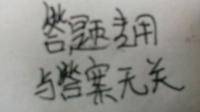 答题专用
与答案无关